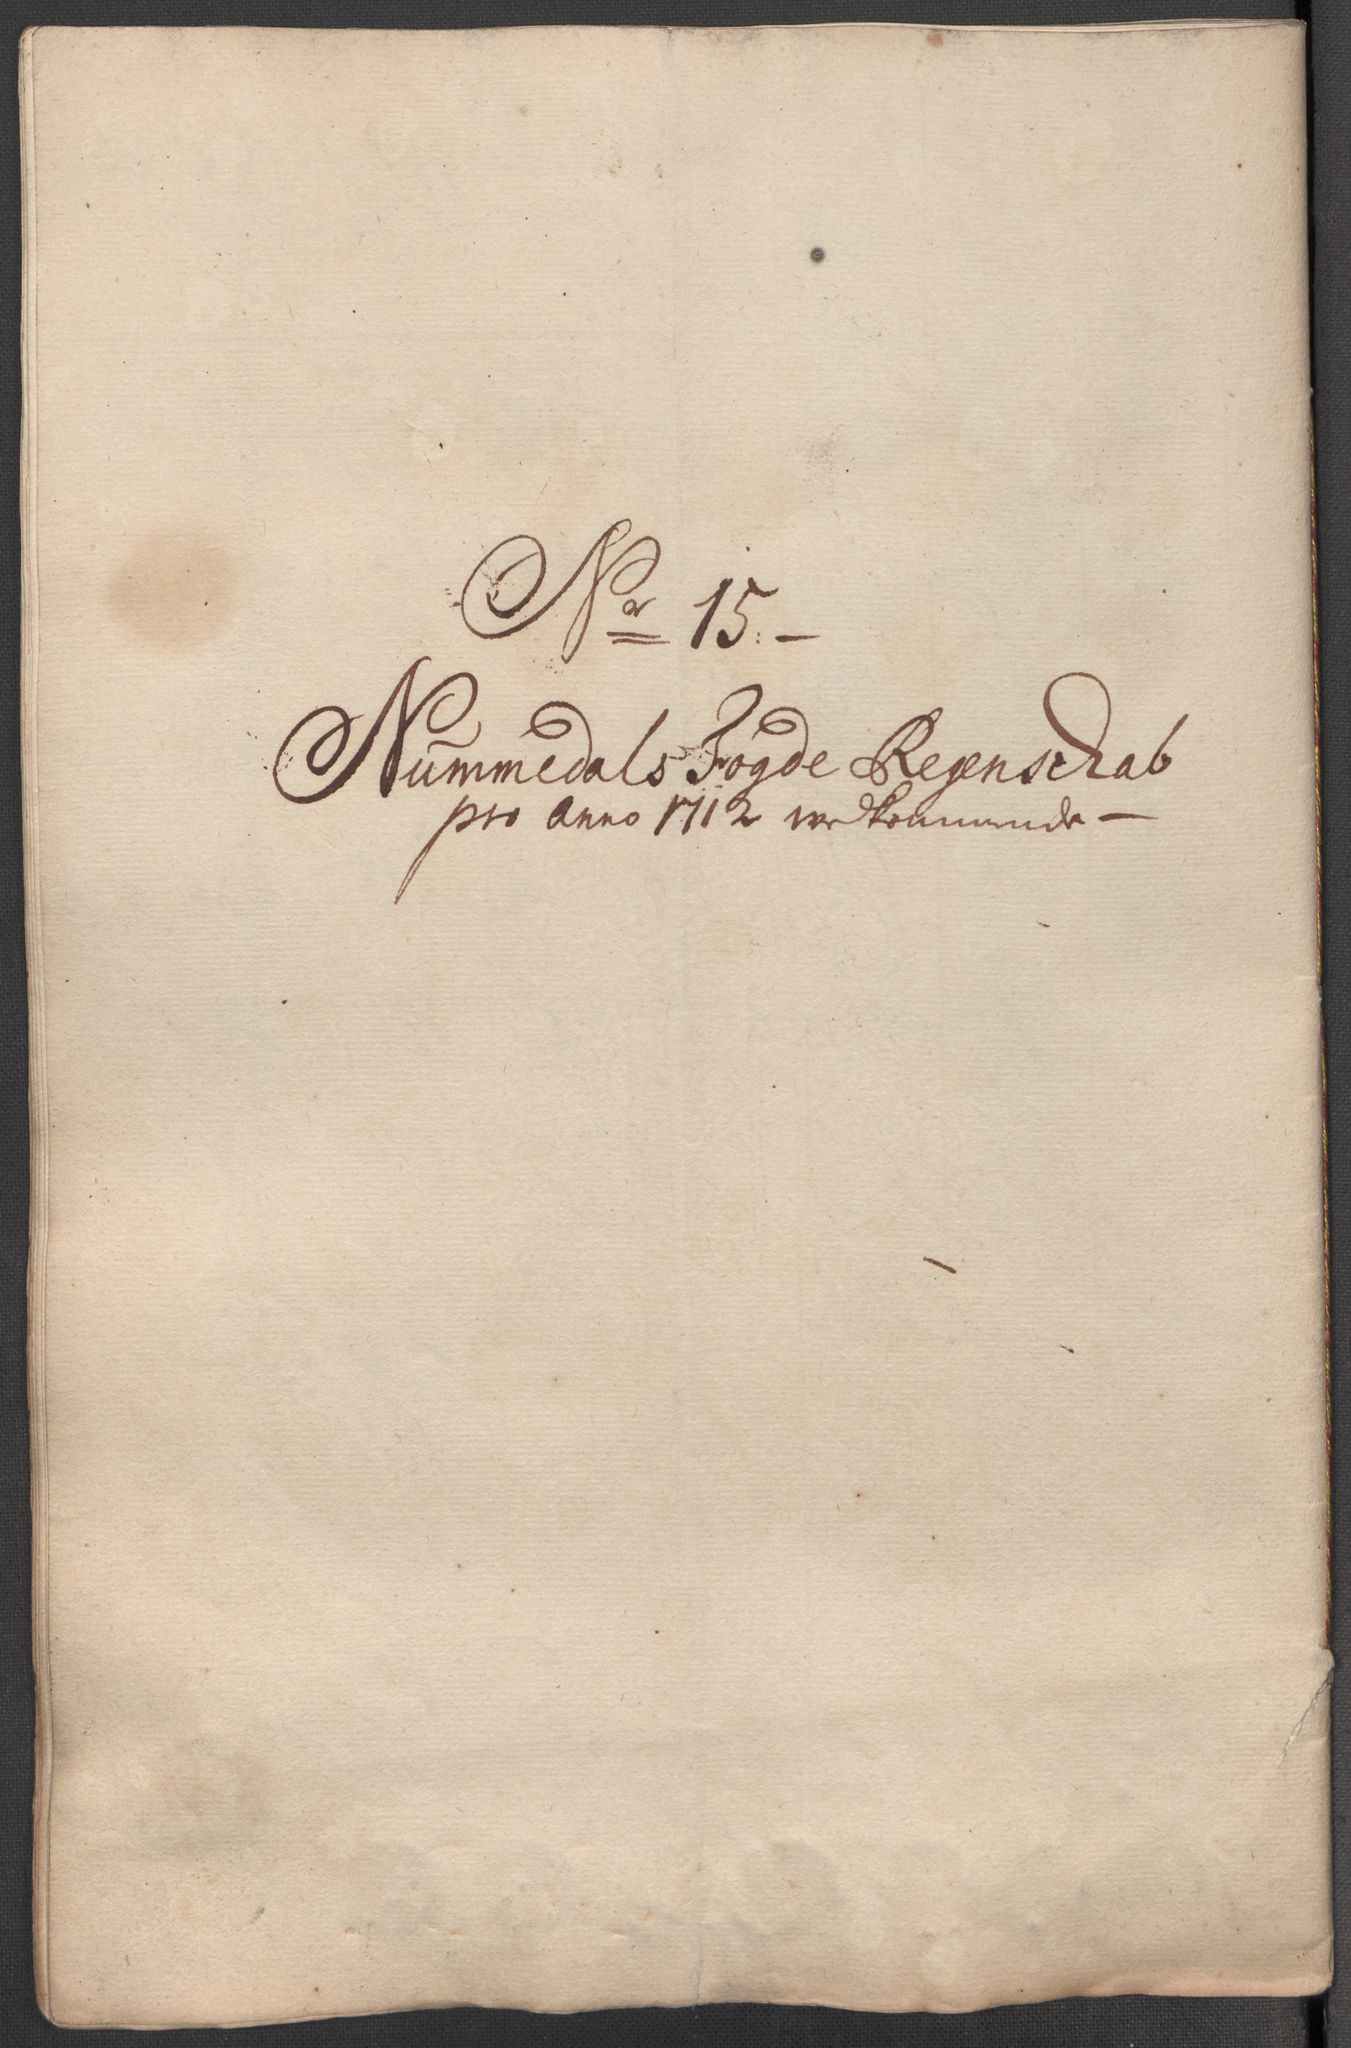 Nr 15.-
Nummedals Fogde Regenschab
pro Anno 1712 wedkommende -